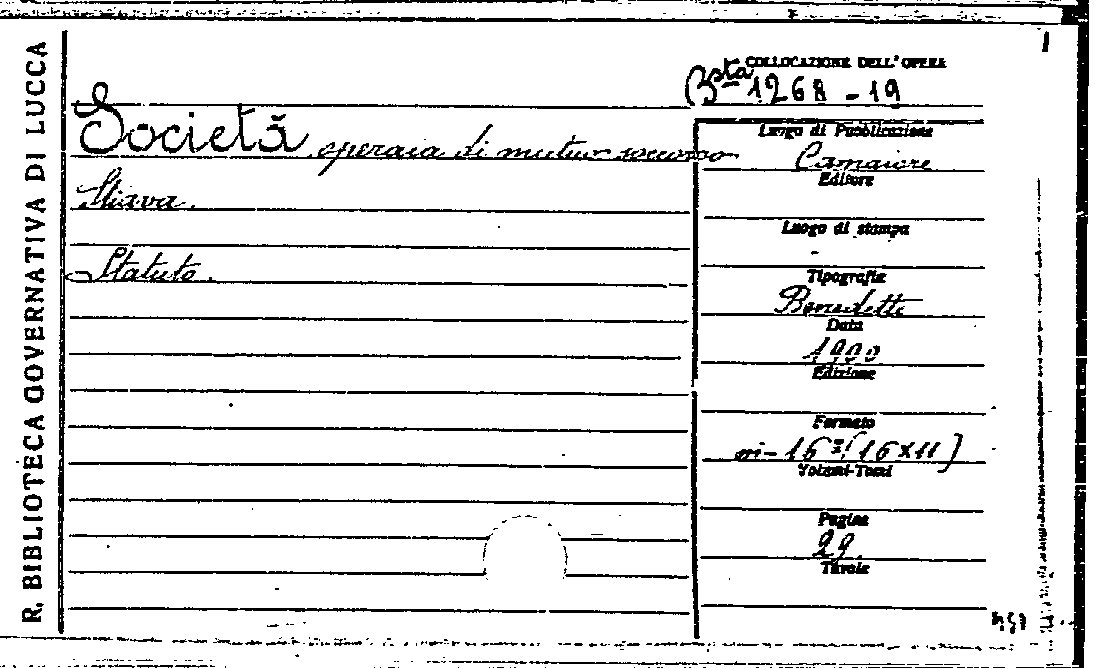 R. BIBLIOTECA GOVERNATIVA DI LUCCA
COLLOCAZIONE DELL' OPERA
Bsta 1268 - 19
Società operaia di mutuo soccorso
Stiava.
Statuto.
Luogo di Pubblicazione
Camaiore
Editore
Luogo di stampa
-
Tipografia
Benedetti
Data
1900
Edizione
Formato
in-16º (16x11)
Volumi-Tomi
Pagine
29.
Tavole